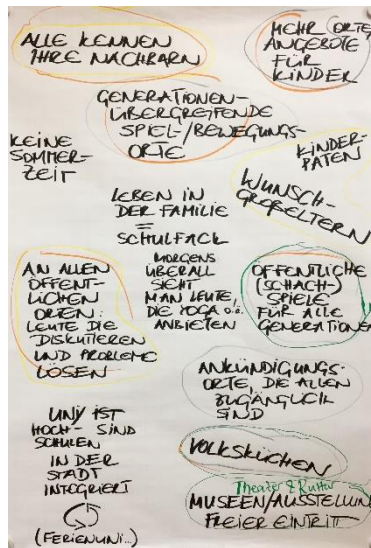 ALLE KENNEN
IHRE NACHBARN
MEHR ORTE,
ANGEBOTE
FÜR
KINDER
GENERATIONEN-
ÜBERGREIFENDE
SPIEL-/BEWEGUNGS-
ORTE
KEINE
SOMMER-
ZEIT
KINDER-
PATEN
WUNSCH-
GROßELTERN
LEBEN IN
DER FAMILIE
=
SCHULFACH
AN ALLEN
ÖFFENT-
LICHEN
ORTEN:
LEUTE DIE
DISKUTIEREN
UND PROBLEME
LÖSEN
MORGENS
ÜBERALL
SIEHT
MAN LEUTE,
DIE YOGA o.ä.
ANBIETEN
ÖFFENTLICHE
(SCHACH-)
SPIELE
FÜR ALLE
GENERATIONEN
ANKÜNDIGUNGS-
ORTE, DIE ALLEN
ZUGÄNGLICH
SIND
UNI IST
HOCH- SIND
SCHULEN
IN DER
STADT
INTEGRIERT
(FERIENUNI...)
VOLKSKÜCHEN
Theater & Kultur
MUSEEN/AUSSTELLUN
FREIER EINTRITT